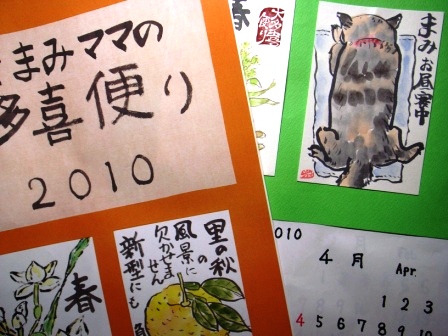 まみママの
多喜便り
2010
春
里の秋
の
風景に
欠かせません
新型にも
春
まみお昼寝中
2010
4月
Apr.
1 2 3
4 5 6 7 8 9 10